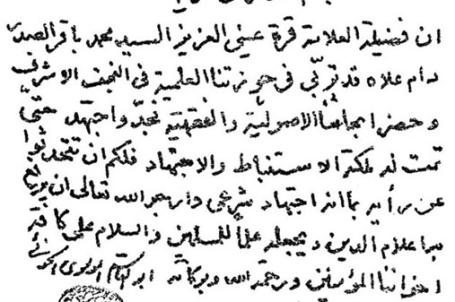 ان فضيلة العلامة قرة عيني العزيز السيد محمد باقر الصدر
دام علاه قد تربّى في حوزتنا العلمية في النجف الاشرف
و حضر ابحاثنا الاصولية والفقهية فجدّ واجتهد حتى
تمت له ملكة الاستنباط والاجتهاد فلكم ان تتحدثوا
عن رأيه بما انه اجتهاد شرعي وارجو الله تعالى ان يرفع
به اعلام الدين ويجعله علما للمسلمين والسلام على كافة
اخواننا المؤمنين ورحمة الله وبركاته ابو القاسم الموسوي الخوئي